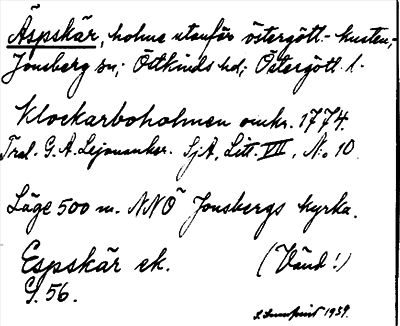 Äspskär, holme utanför östergötl.-kusten,
Jonsberg sn; Östkinds hd; Östergötl. l.
Klockarboholmen omkr. 1774.
G. A. Lejonanker. SjA, Litt. VII, No 10.
Läge 500 m. NNÖ Jonsbergs kyrka.
Espskär ek. (Vänd!)
G. 56.
1939.